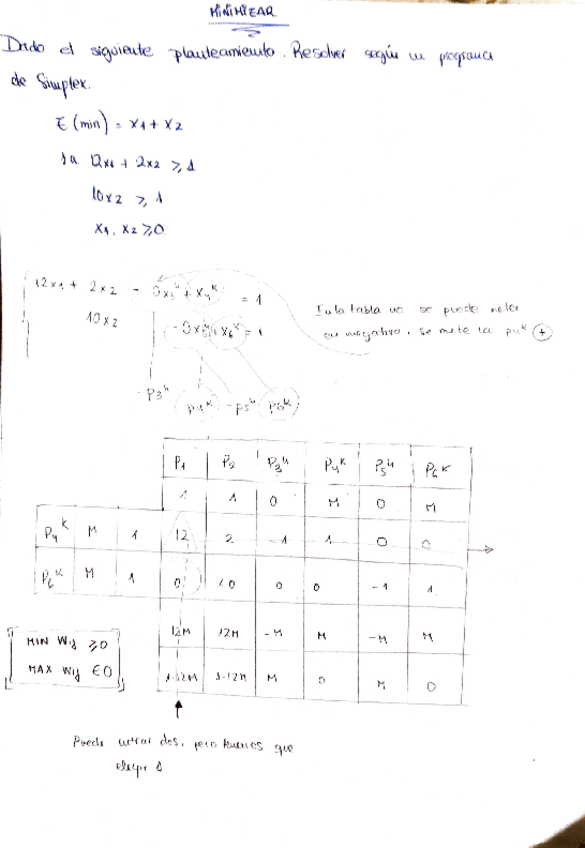 MINIMIZAR
Dado el siguiente planteamiento. Resolver según un programa
de Simplex.
Z (min) = x1 + x2
s.a. 12x1 + 2x2 ≥ 1
10x2 ≥ 1
x1, x2 ≥ 0
12x1 + 2x2 - 0x3^h + x4^k = 1
10x2 - 0x5^h + x6^k = 1
En la tabla no se puede meter
en negativo, se mete la p4^k (+)
-P3^h P4^k -P5^h P6^k
P1 P2 P3^h P4^k P5^h P6^k
1 1 0 M 0 M
P4^k M 1 12 2 -1 1 0 0
P6^k M 1 0 10 0 0 -1 1
12M 12M -M M -M M
1-12M 1-12M M 0 M 0
MIN Wij ≥ 0
MAX Wij ≤ 0
Puede entrar dos, pero tenemos que
elegir 1